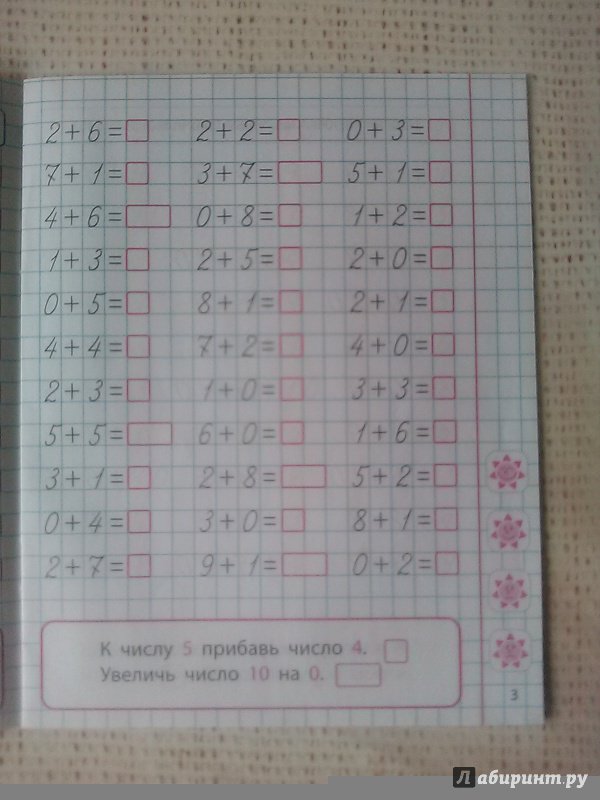 2+6= 2+2= 0+3=
7+1= 3+7= 5+1=
4+6= 0+8= 1+2=
1+3= 2+5= 2+0=
0+5= 8+1= 2+1=
4+4= 7+2= 4+0=
2+3= 1+0= 3+3=
5+5= 6+0= 1+6=
3+1= 2+8= 5+2=
0+4= 3+0= 8+1=
2+7= 9+1= 0+2=
К числу 5 прибавь число 4.
Увеличь число 10 на 0.
3
Лабиринт.ру